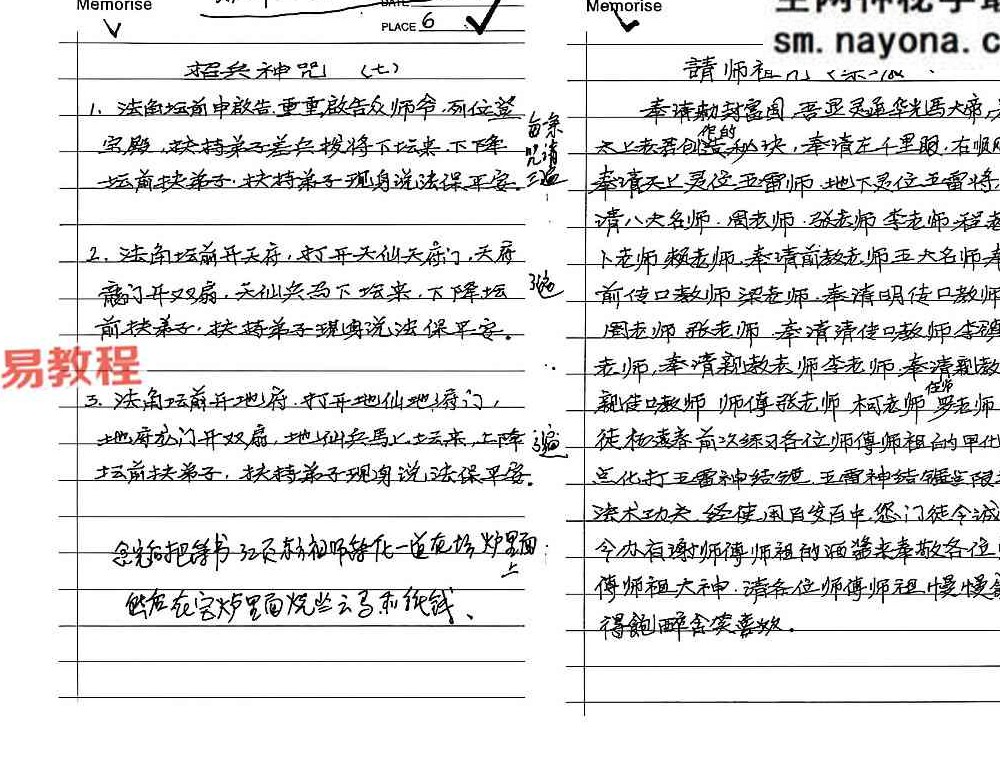 Memorise
DATE
PLACE 6
招兵神咒 (七)
1、法角坛前申啟告,重重啟告众师令,列位登
宝殿,扶持弟子差兵拨将下坛来,下降
坛前扶弟子,扶持弟子现身说法保平安。
每条咒请三遍
2、法角坛前开天府,打开天仙天府门,天府
门开双扇,天仙兵马下坛来,下降坛
前扶弟子,扶持弟子现身说法保平安。
3遍
3、法角坛前开地府,打开地仙地府门,
地府门开双扇,地仙兵馬上坛来,上降
坛前扶弟子,扶持弟子现身说法保平安。
3遍
一道在坛炉里面
上
然后在宫炉里面烧些云马和纸钱、
易教程
Memorise
sm. nayona.c
請师祖
奉请勅封富国,吾显灵通华光馬大帝,
太上老君创造秘诀,奉请左千里眼,右順
作的
奉请天上灵位五雷师,地下灵位五雷将,
请八大名师,周老师,张老师李老师,程老
卜老师赖老师,奉请前教老师五大名师奉
前传口教师梁老师,奉请明传口教师
周老师张老师,奉请清传口教师李
老师,奉请親教老师李老师,奉请親教
親传口教师 师傅张老师 柯老师 罗老师
徒杨 前次练习各位师傅师祖的
化打五雷神结 五雷神结
法术功夫,经使用百发百中,您门徒今诚
今办有謝师傅师祖的酒 来奉敬各位
傅师祖大神,请各位师傅师祖慢慢
得飽醉含笑喜欢。